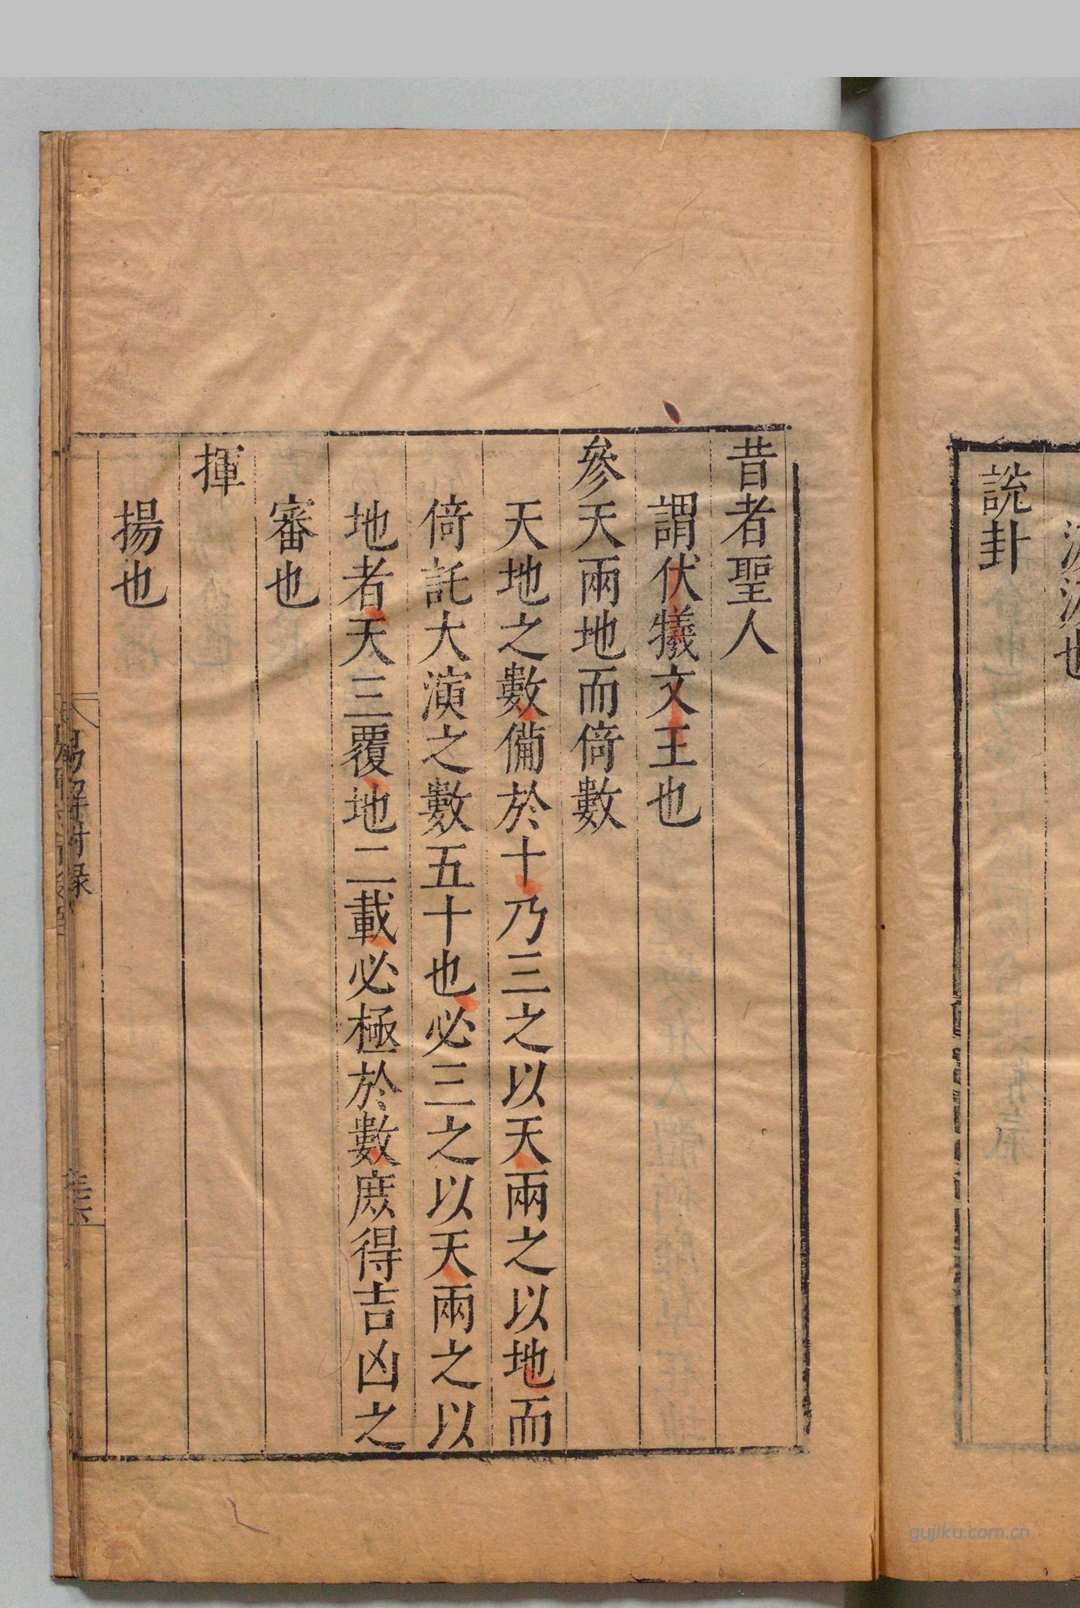 說卦
昔者聖人
謂伏犧文王也
參天兩地而倚數
天地之數備於十乃三之以天兩之以地而
倚託大演之數五十也必三之以天兩之以
地者天三覆地二載必極於數庶得吉凶之
審也
揮
揚也
易解附錄
gujiku.com.cn